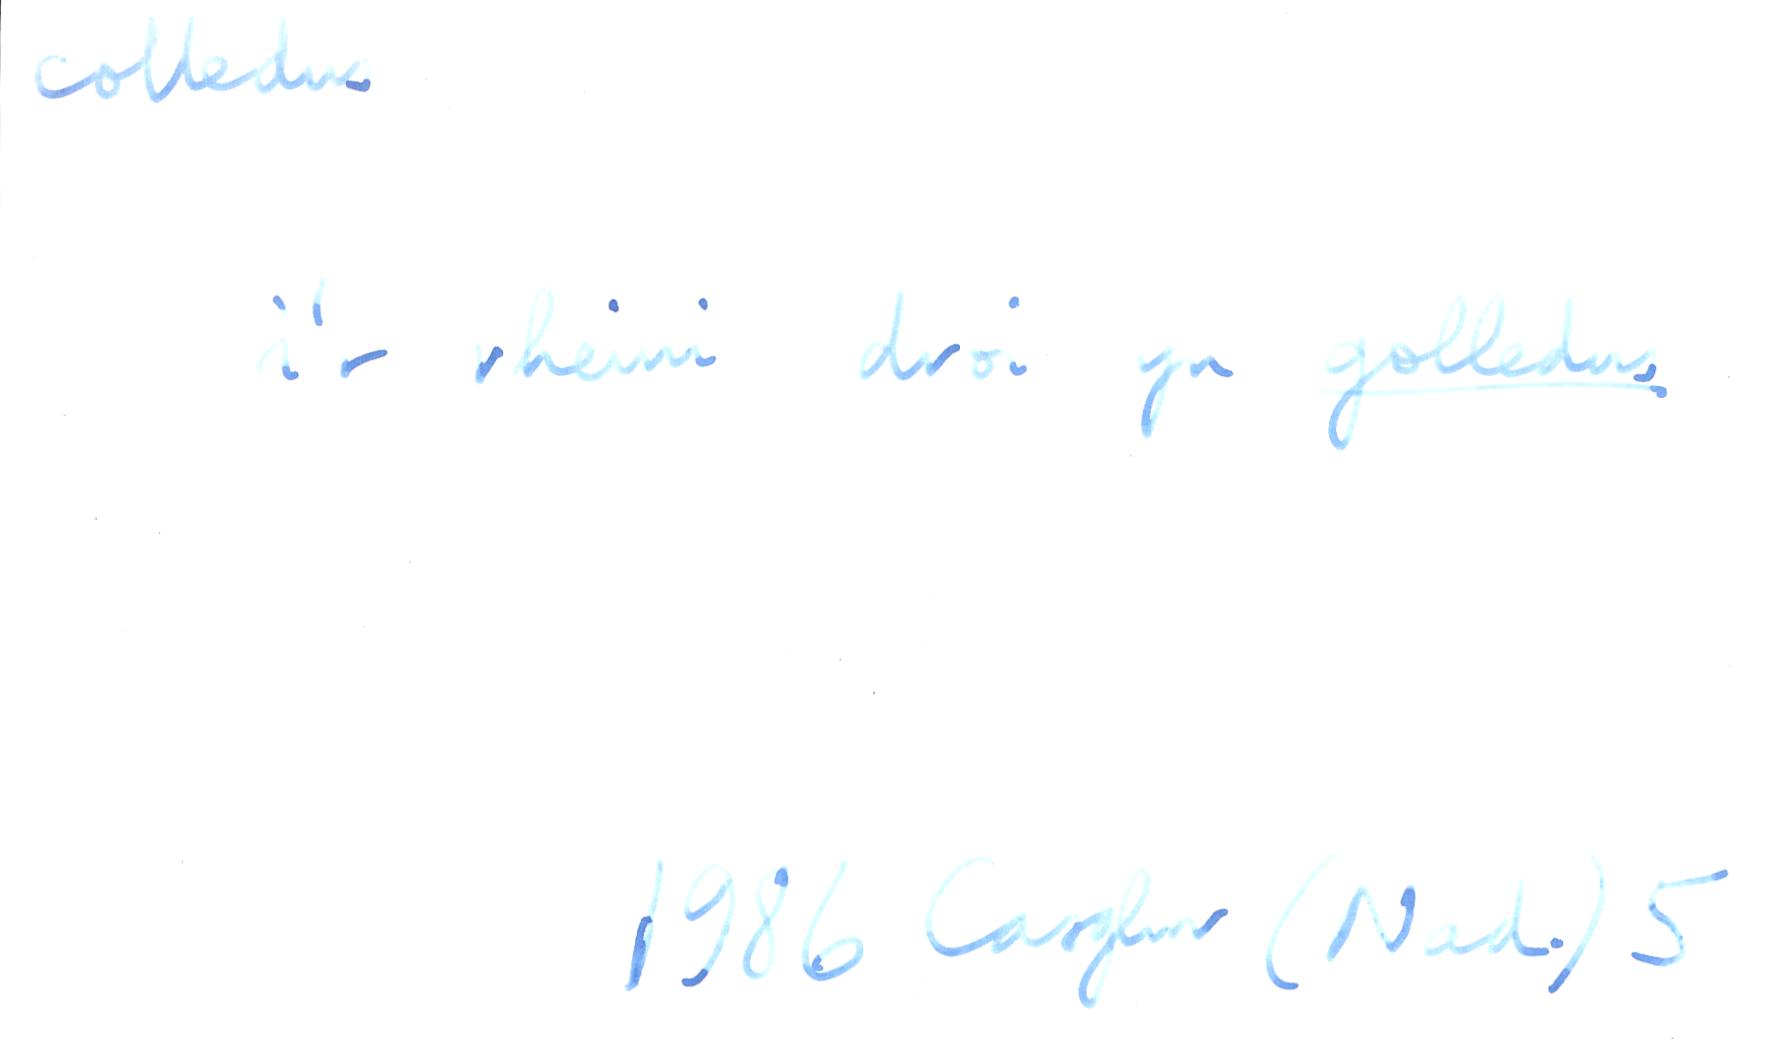 colledus
i'r rheini droi yn golledus
1986 Casglwr (Nad.) 5